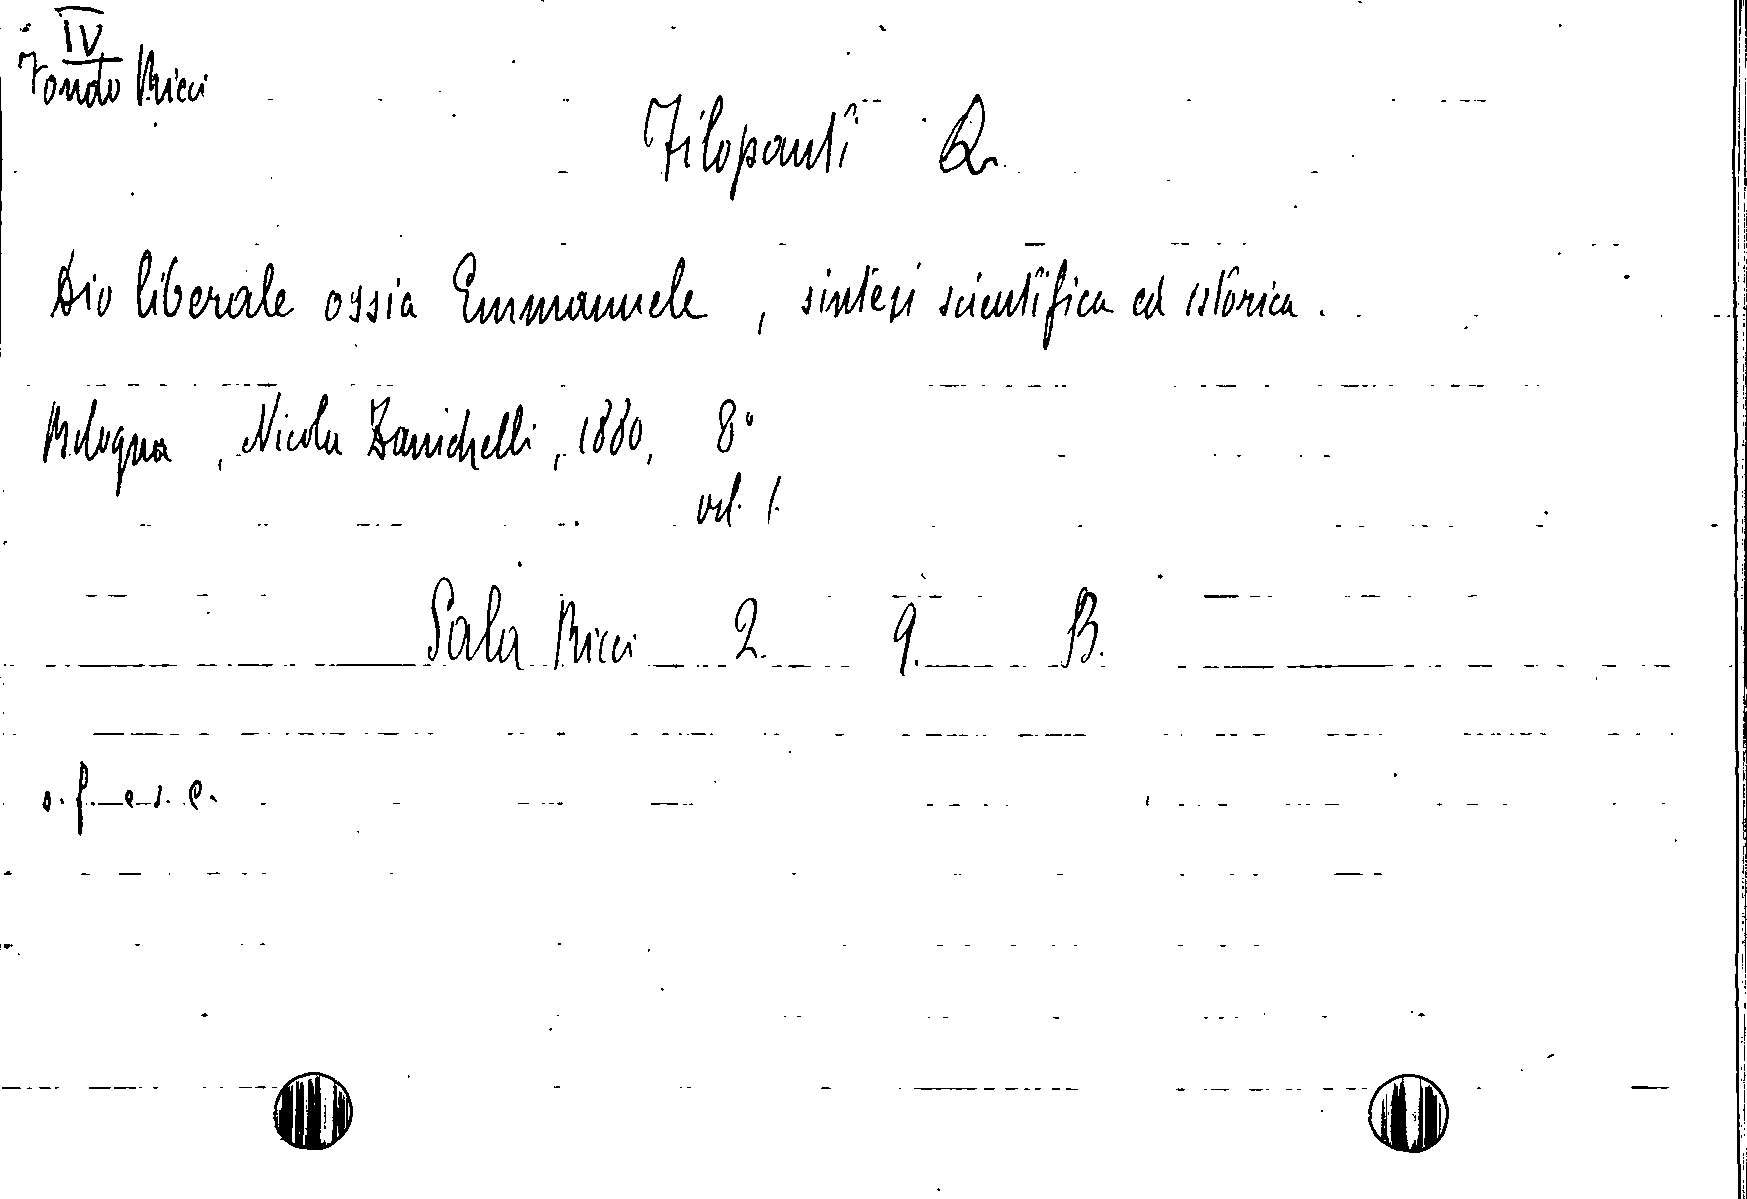 IV
Fondo Ricci
Filopanti Q.
Dio liberale ossia Emmanuele , sintesi scientifica ed istorica .
Bologna , Nicola Zanichelli , 1880, 8°
vol. 1.
Sala Ricci 2. 9. B.
s. f. e s. c.